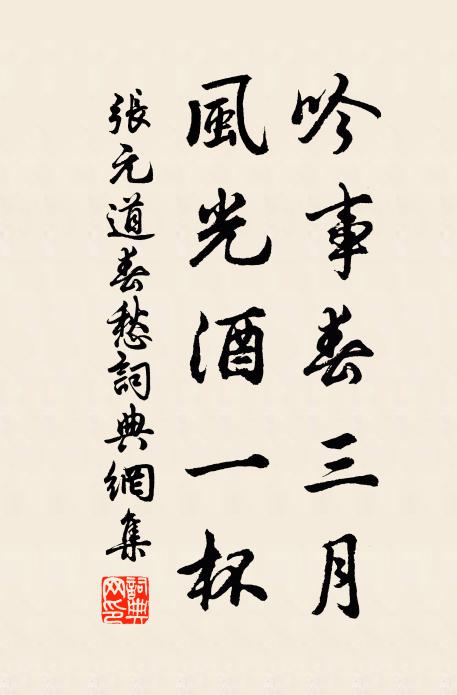 吟事春三月
風光酒一杯
張元道春愁詞典網集
詞典網印